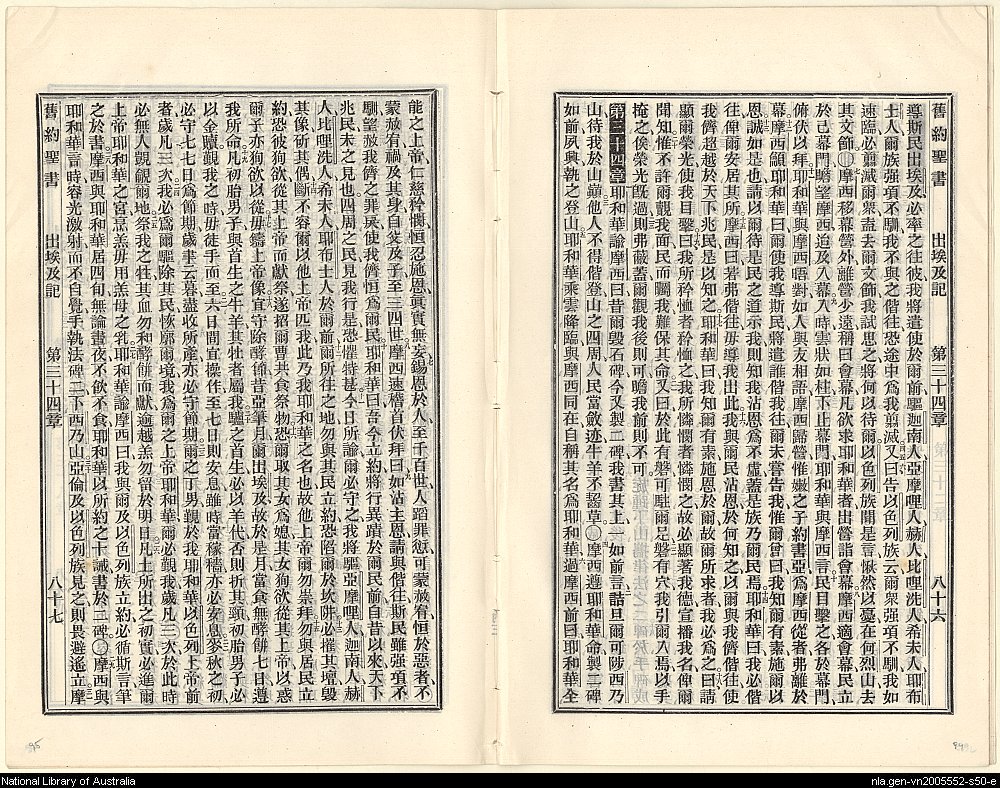 舊約聖書 出埃及記 第三十四章 八十六
導斯民出埃及必率之往彼我將遣使於爾前驅迦南人亞摩哩人赫人比哩洗人希未人耶布
士人爾族強項不馴我不與之偕往恐途中爲我翦滅又曰告以色列族云爾衆強項不馴我如
速臨必翦滅爾蒙盍去爾文飾我試思之將何以待爾以色列族聞是言愀然以憂在何烈山去
其文飾○摩西移幕營外離營少遠稱曰會幕凡欲求耶和華者出營詣會幕摩西適會幕民立
於己幕門瞻望摩西迨及入幕入時雲狀如柱下止幕門耶和華與摩西言民目擊之各於幕門
俯伏以拜耶和華與摩西晤對如人與友相語摩西歸營惟嫩之子約書亞爲摩西從者弗離於
幕摩西籲耶和華曰爾使我導斯民將遣誰偕我往爾未嘗告我惟爾曾曰我知爾有素施爾以
恩誠如是也請以爾待是民之道示我則知我沾恩爲不虛蓋是族乃爾民焉耶和華曰我必偕
往俾爾安居其所摩西曰若弗偕往毋導我出此我與爾民沾恩於何知之以爾與我儕偕往使
我儕超越於天下兆民是以知之耶和華曰我知爾有素施恩於爾故爾所求者我必爲之曰請
顯爾榮光使我目擊曰我所矜恤者矜恤之我所憐憫者憐憫之故必顯著我德宣播我名俾爾
聞知惟不許爾覿我面民而矚我難保其命又曰於此有磐可駐爾足磐有穴我引爾入焉以手
掩之俟我榮光旣過則弗蔽蓋爾觀我後則可瞻我前則不可
第三十四章 耶和華諭摩西曰昔爾毀石碑今又製二碑我書其上一如前言詰旦爾可陟西乃
山待我於山巔他人不得偕登山之四周人民當斂迹牛羊不齧草○摩西遵耶和華命製二碑
如前夙興執之登山耶和華乘雲降臨與摩西同在自稱其名爲耶和華過摩西前曰耶和華全
能之上帝仁慈矜憫恒忍施恩眞實無妄錫恩於人至千百世人蹈罪愆可蒙赦宥恒於惡者不
蒙赦宥禍及其身自父及子至三四世摩西速稽首伏拜曰如沾主恩請與偕往斯民雖強項不
馴望赦我儕之罪戾使我儕恒爲爾民耶和華曰吾今立約將行異蹟於爾民前自昔以來天下
兆民未之見也四周之民見我行是恐懼特甚今日所諭爾必守之我將驅亞摩哩人迦南人赫
人比哩洗人希未人耶布士人於爾前爾所往之地勿與其民立約恐陷爾於坎阱必摧其壇毀
其像斫其偶斷不容爾以他上帝匹我此乃我耶和華之名也故他上帝爾勿崇拜勿與居民立
約恐彼狥欲從其上帝而獻祭遂招爾曹共食祭物恐爾取其女爲媳其女狥欲從其上帝以惑
爾子亦狥欲以從毋鑄上帝像宜守除酵節昔亞筆月爾出埃及故於是月當食無酵餅七日遵
我所命凡初胎男子與首生之牛羊其牡者屬我驢之首生必以羊代否則折其頸初胎男子必
以金贖覲我之時毋徒手而至六日間宜操作至七日則安息雖時當稼穡亦必安息麥秋之初
必守七七日爲節期歲聿云暮盡收所產亦必守節期爾之丁男覲於我耶和華以色列上帝前
者歲凡三次我必爲爾驅除其民恢廓爾境我爲爾之上帝耶和華爾必覲我歲凡三次於此時
必無人覬覦爾地祭我之牲其血勿和酵餅而獻逾越羔勿留於明日凡土所出之初實必進爾
上帝耶和華之宮烹羔毋用羔母之乳耶和華諭摩西曰我與爾及以色列族立約必循斯言筆
之於書摩西與耶和華居四旬無論晝夜不飲不食耶和華以所約之十誡書於二碑○摩西與
耶和華言時容光激射而不自覺手執法碑二下西乃山亞倫及以色列族見之則畏避遙立摩
舊約聖書 出埃及記 第三十四章 八十七
National Library of Australia
nla.gen-vn2005552-s50-e